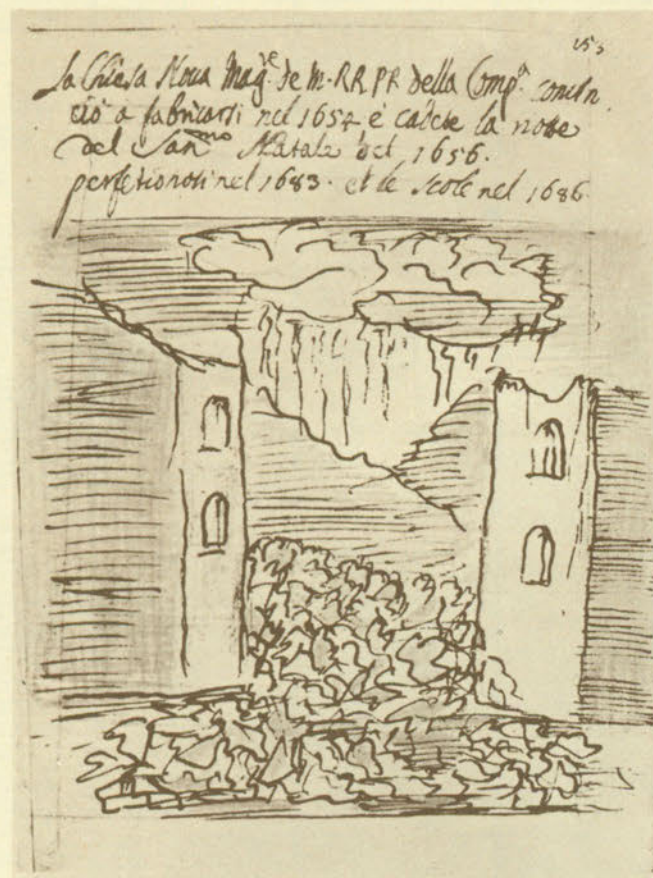 153
La Chiesa Nova Mag.ve de M. RR PP della Comp.a comin
ciò a fabricarsi nel 1654 e cadete la notte
del San.mo Natale del 1656.
perfetionosi nel 1683. et le Scole nel 1686.